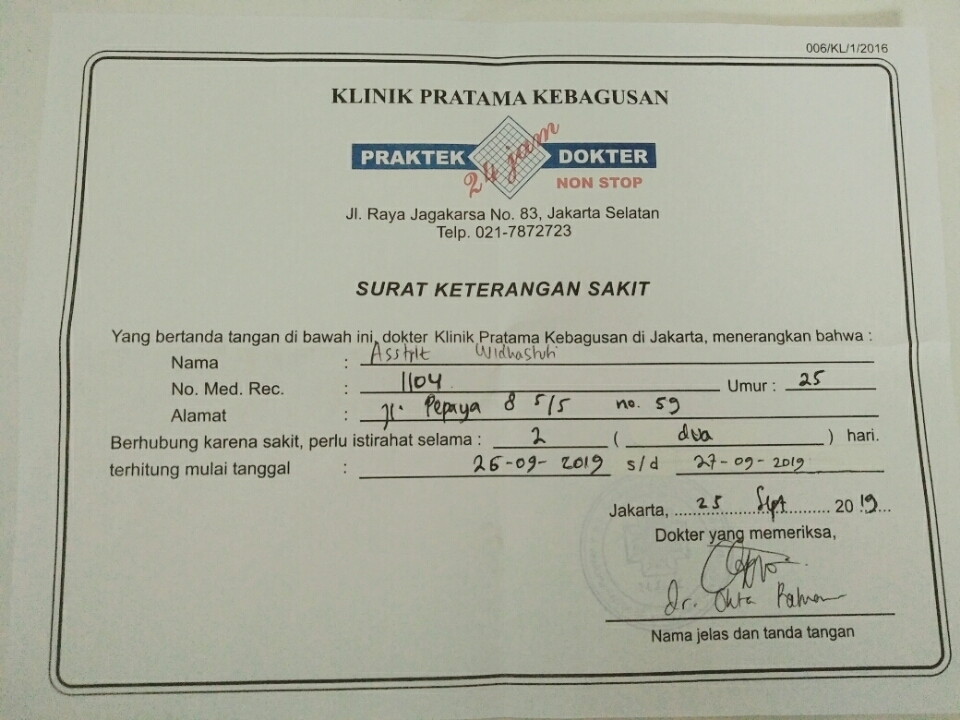 006/KL/1/2016
KLINIK PRATAMA KEBAGUSAN
PRAKTEK 24 jam DOKTER
NON STOP
Jl. Raya Jagakarsa No. 83, Jakarta Selatan
Telp. 021-7872723
SURAT KETERANGAN SAKIT
Yang bertanda tangan di bawah ini, dokter Klinik Pratama Kebagusan di Jakarta, menerangkan bahwa :
Nama : Widhastuti
No. Med. Rec. : 1104 Umur : 25
Alamat : Jl. Pepaya 8 5/5 no. 59
Berhubung karena sakit, perlu istirahat selama : 2 ( dua ) hari.
terhitung mulai tanggal : 26-09-2019 s/d 27-09-2019
Jakarta, 25 Sept 2019
Dokter yang memeriksa,
dr. Okta
Nama jelas dan tanda tangan